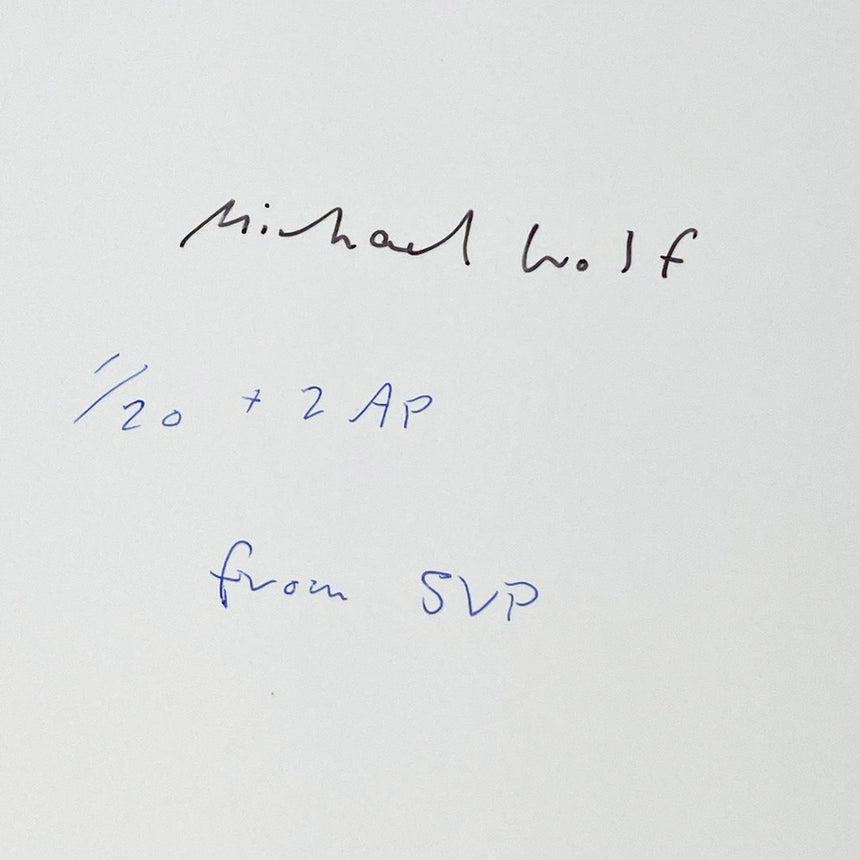 Michael Wolf
1/20 + 2 AP
from SVP